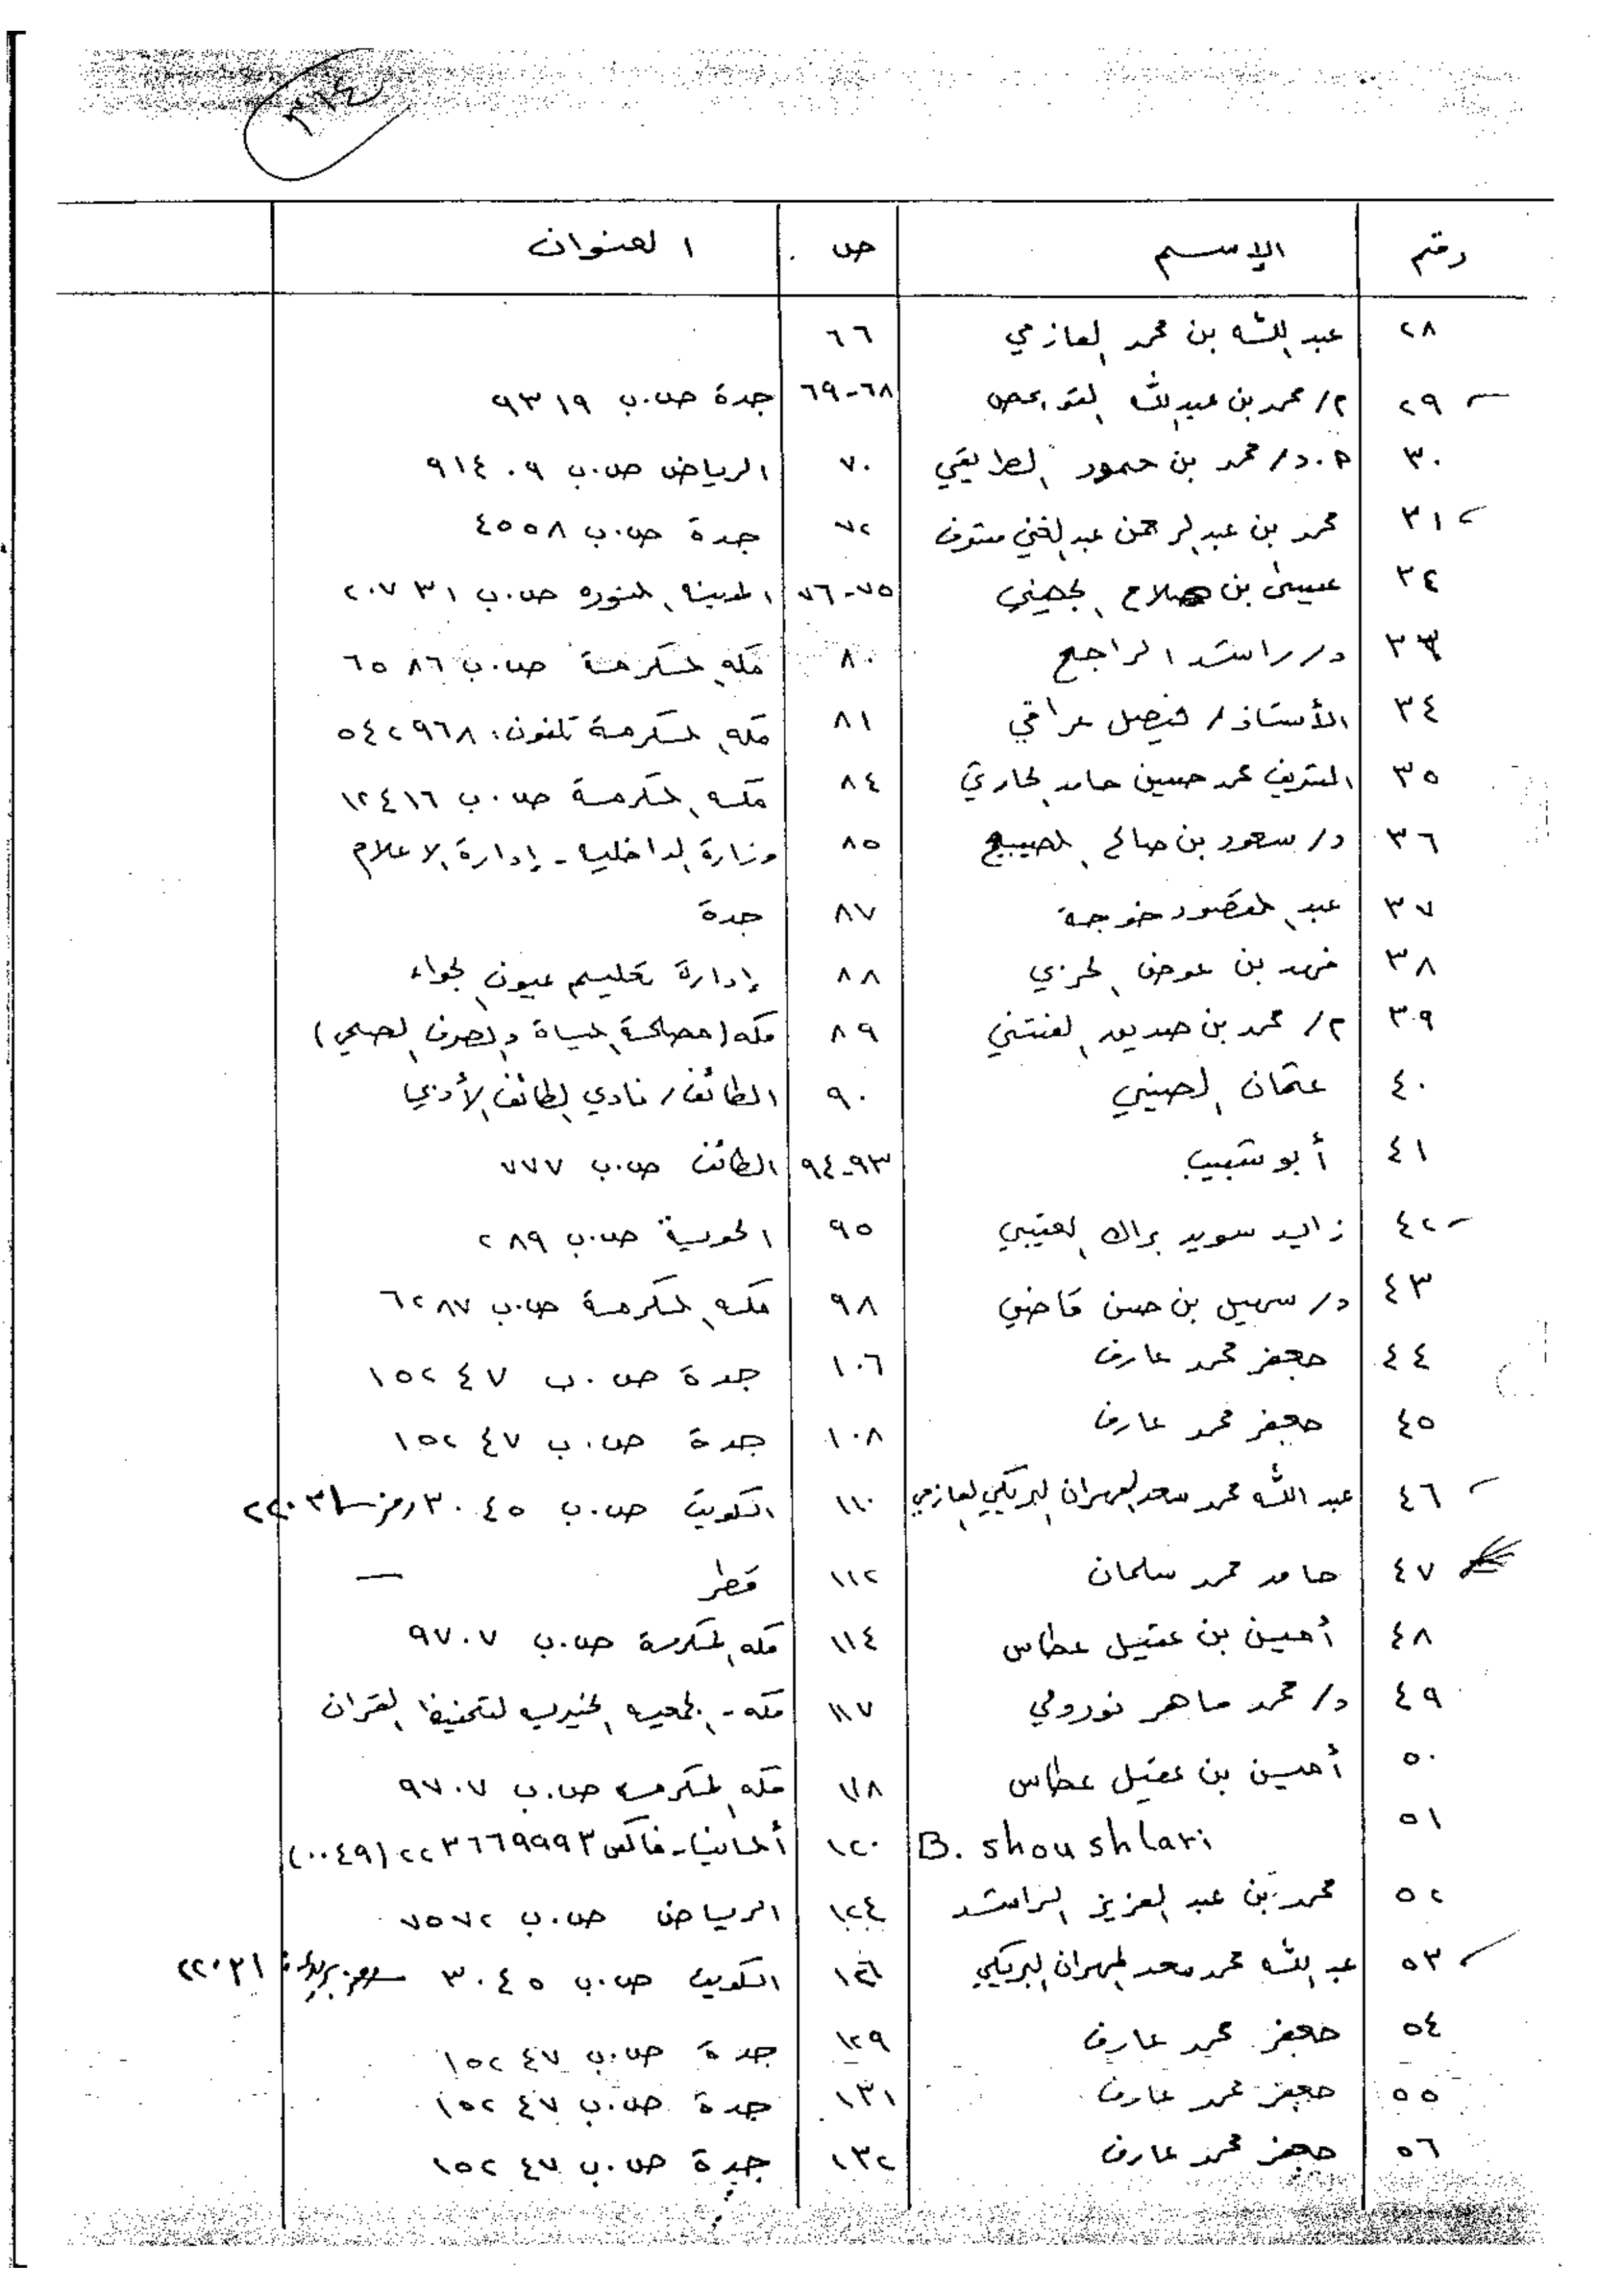 ٣٦٤
رقم الاسم ص العنوان
٢٨ عبد الله بن محمد العازمي ٦٦
٢٩ م/ محمد بن عبدالله القويحص ٦٨-٦٩ جدة ص.ب ٩٣١٩
٣٠ م.د/ محمد بن حمود الطريقي ٧٠ الرياض ص.ب ٩١٤٠٩
٣١ محمد بن عبدالرحمن عبدالغني ٧٢ جدة ص.ب ٤٥٥٨
٣٢ عيسى بن صلاح الجهني ٧٥-٧٦ المدينه المنوره ص.ب ٢٠٧٣١
٣٣ د/ راشد الراجح ٨٠ مكه المكرمة ص.ب ٦٥٨٦
٣٤ الأستاذ/ فيصل عراقي ٨١ مكه المكرمة تلفون: ٥٤٢٩٦٨
٣٥ الشريف محمد حسين حامد الحارثي ٨٤ مكه المكرمة ص.ب ١٢٤١٦
٣٦ د/ سعود بن صالح المصيبيح ٨٥ وزارة الداخليه - إدارة الاعلام
٣٧ عبد المقصود خوجة ٨٧ جدة
٣٨ فهد بن عوض الحربي ٨٨ إدارة تعليم عيون الجواء
٣٩ م/ محمد بن صديق الفتني ٨٩ مكه (مصلحة المياة والصرف الصحي)
٤٠ عثمان الصيني ٩٠ الطائف/ نادي الطائف الأدبي
٤١ أبو شبيب ٩٣-٩٤ الطائف ص.ب ٧٧٧
٤٢ زايد سويد براك العتيبي ٩٥ الحوية ص.ب ٢٨٩
٤٣ د/ سهيل بن حسن قاضي ٩٨ مكه المكرمة ص.ب ٦٢٨٧
٤٤ جعفر محمد عارف ١٠٦ جدة ص.ب ١٥٢٤٧
٤٥ جعفر محمد عارف ١٠٨ جدة ص.ب ١٥٢٤٧
٤٦ عبد الله محمد سعد المهران البريكي العازمي ١١٠ الكويت ص.ب ٣٠٤٥ رمز ٢٢٠٣١
٤٧ حامد محمد سلمان ١١٢ قطر —
٤٨ أمين بن عقيل عطاس ١١٤ مكه المكرمة ص.ب ٩٧٠٧
٤٩ د/ محمد ماهر نورولي ١١٧ مكه - الجمعيه الخيريه لتحفيظ القران
٥٠ أمين بن عقيل عطاس ١١٨ مكه المكرمه ص.ب ٩٧٠٧
٥١ B. shoushlari ١٢٠ ألمانيا - فاكس ٢٢٣٦٦٩٩٩٣ (٠٠٤٩)
٥٢ محمد بن عبد العزيز الراشد ١٢٤ الرياض ص.ب ٧٥٧٢
٥٣ عبد الله محمد سعد المهران البريكي ١٢٦ الكويت ص.ب ٣٠٤٥ ٢٢٠٣١
٥٤ جعفر محمد عارف ١٢٩ جدة ص.ب ١٥٢٤٧
٥٥ جعفر محمد عارف ١٣١ جدة ص.ب ١٥٢٤٧
٥٦ جعفر محمد عارف ١٣٢ جدة ص.ب ١٥٢٤٧